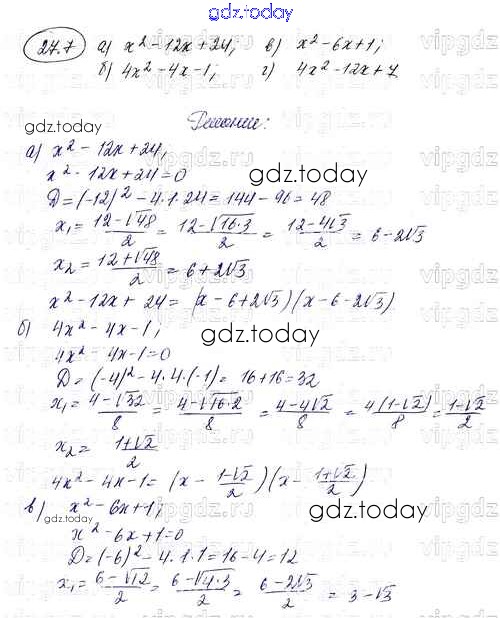 gdz.today
27.7 а) x² - 12x + 24; в) x² - 6x + 1;
б) 4x² - 4x - 1; г) 4x² - 12x + 7
Решение:
gdz.today
а) x² - 12x + 24;
x² - 12x + 24 = 0
gdz.today
D = (-12)² - 4·1·24 = 144 - 96 = 48
x₁ = (12-√48)/2 = (12-√(16·3))/2 = (12-4√3)/2 = 6-2√3
x₂ = (12+√48)/2 = 6+2√3
x² - 12x + 24 = (x - 6 + 2√3)(x - 6 - 2√3)
б) 4x² - 4x - 1;
gdz.today
4x² - 4x - 1 = 0
D = (-4)² - 4·4·(-1) = 16 + 16 = 32
x₁ = (4-√32)/8 = (4-√(16·2))/8 = (4-4√2)/8 = 4(1-√2)/8 = (1-√2)/2
x₂ = (1+√2)/2
4x² - 4x - 1 = (x - (1-√2)/2)(x - (1+√2)/2)
в) x² - 6x + 1;
gdz.today
x² - 6x + 1 = 0
D = (-6)² - 4·1·1 = 16 - 4 = 12
x₁ = (6-√12)/2 = (6-√(4·3))/2 = (6-2√3)/2 = 3-√3